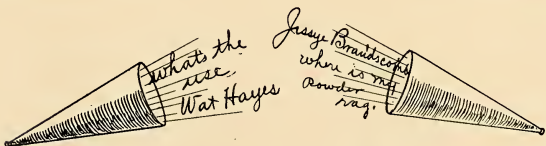 what's the
use.
Wat Hayes
Jessye Brandscome
where is my
Powder
rag.